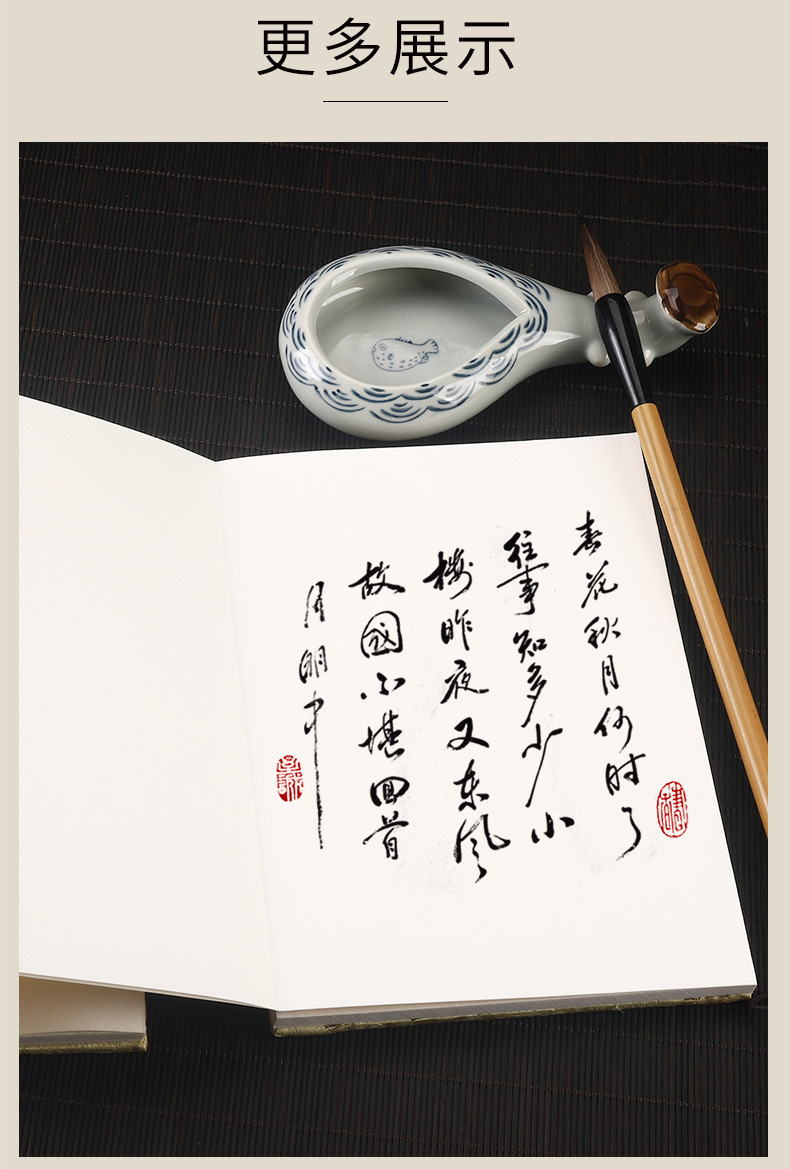 更多展示
春花秋月何时了
往事知多少小
楼昨夜又东风
故國不堪回首
月明中